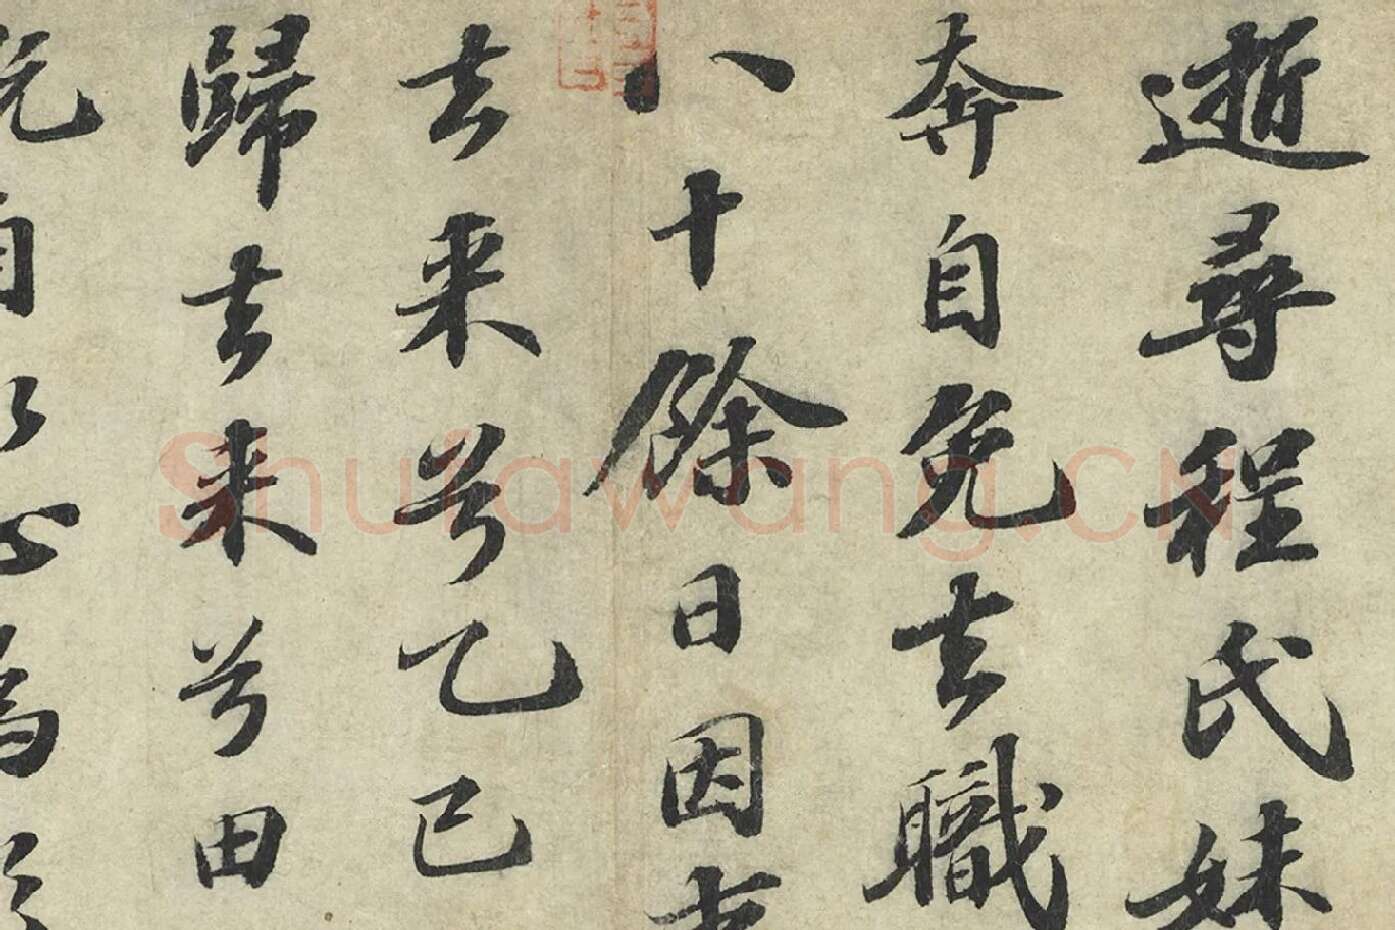 逝尋程氏妹
奔自免去職
八十餘日因事
去来兮乙巳
歸去来兮田
既自以心為形
Shufawang.CN